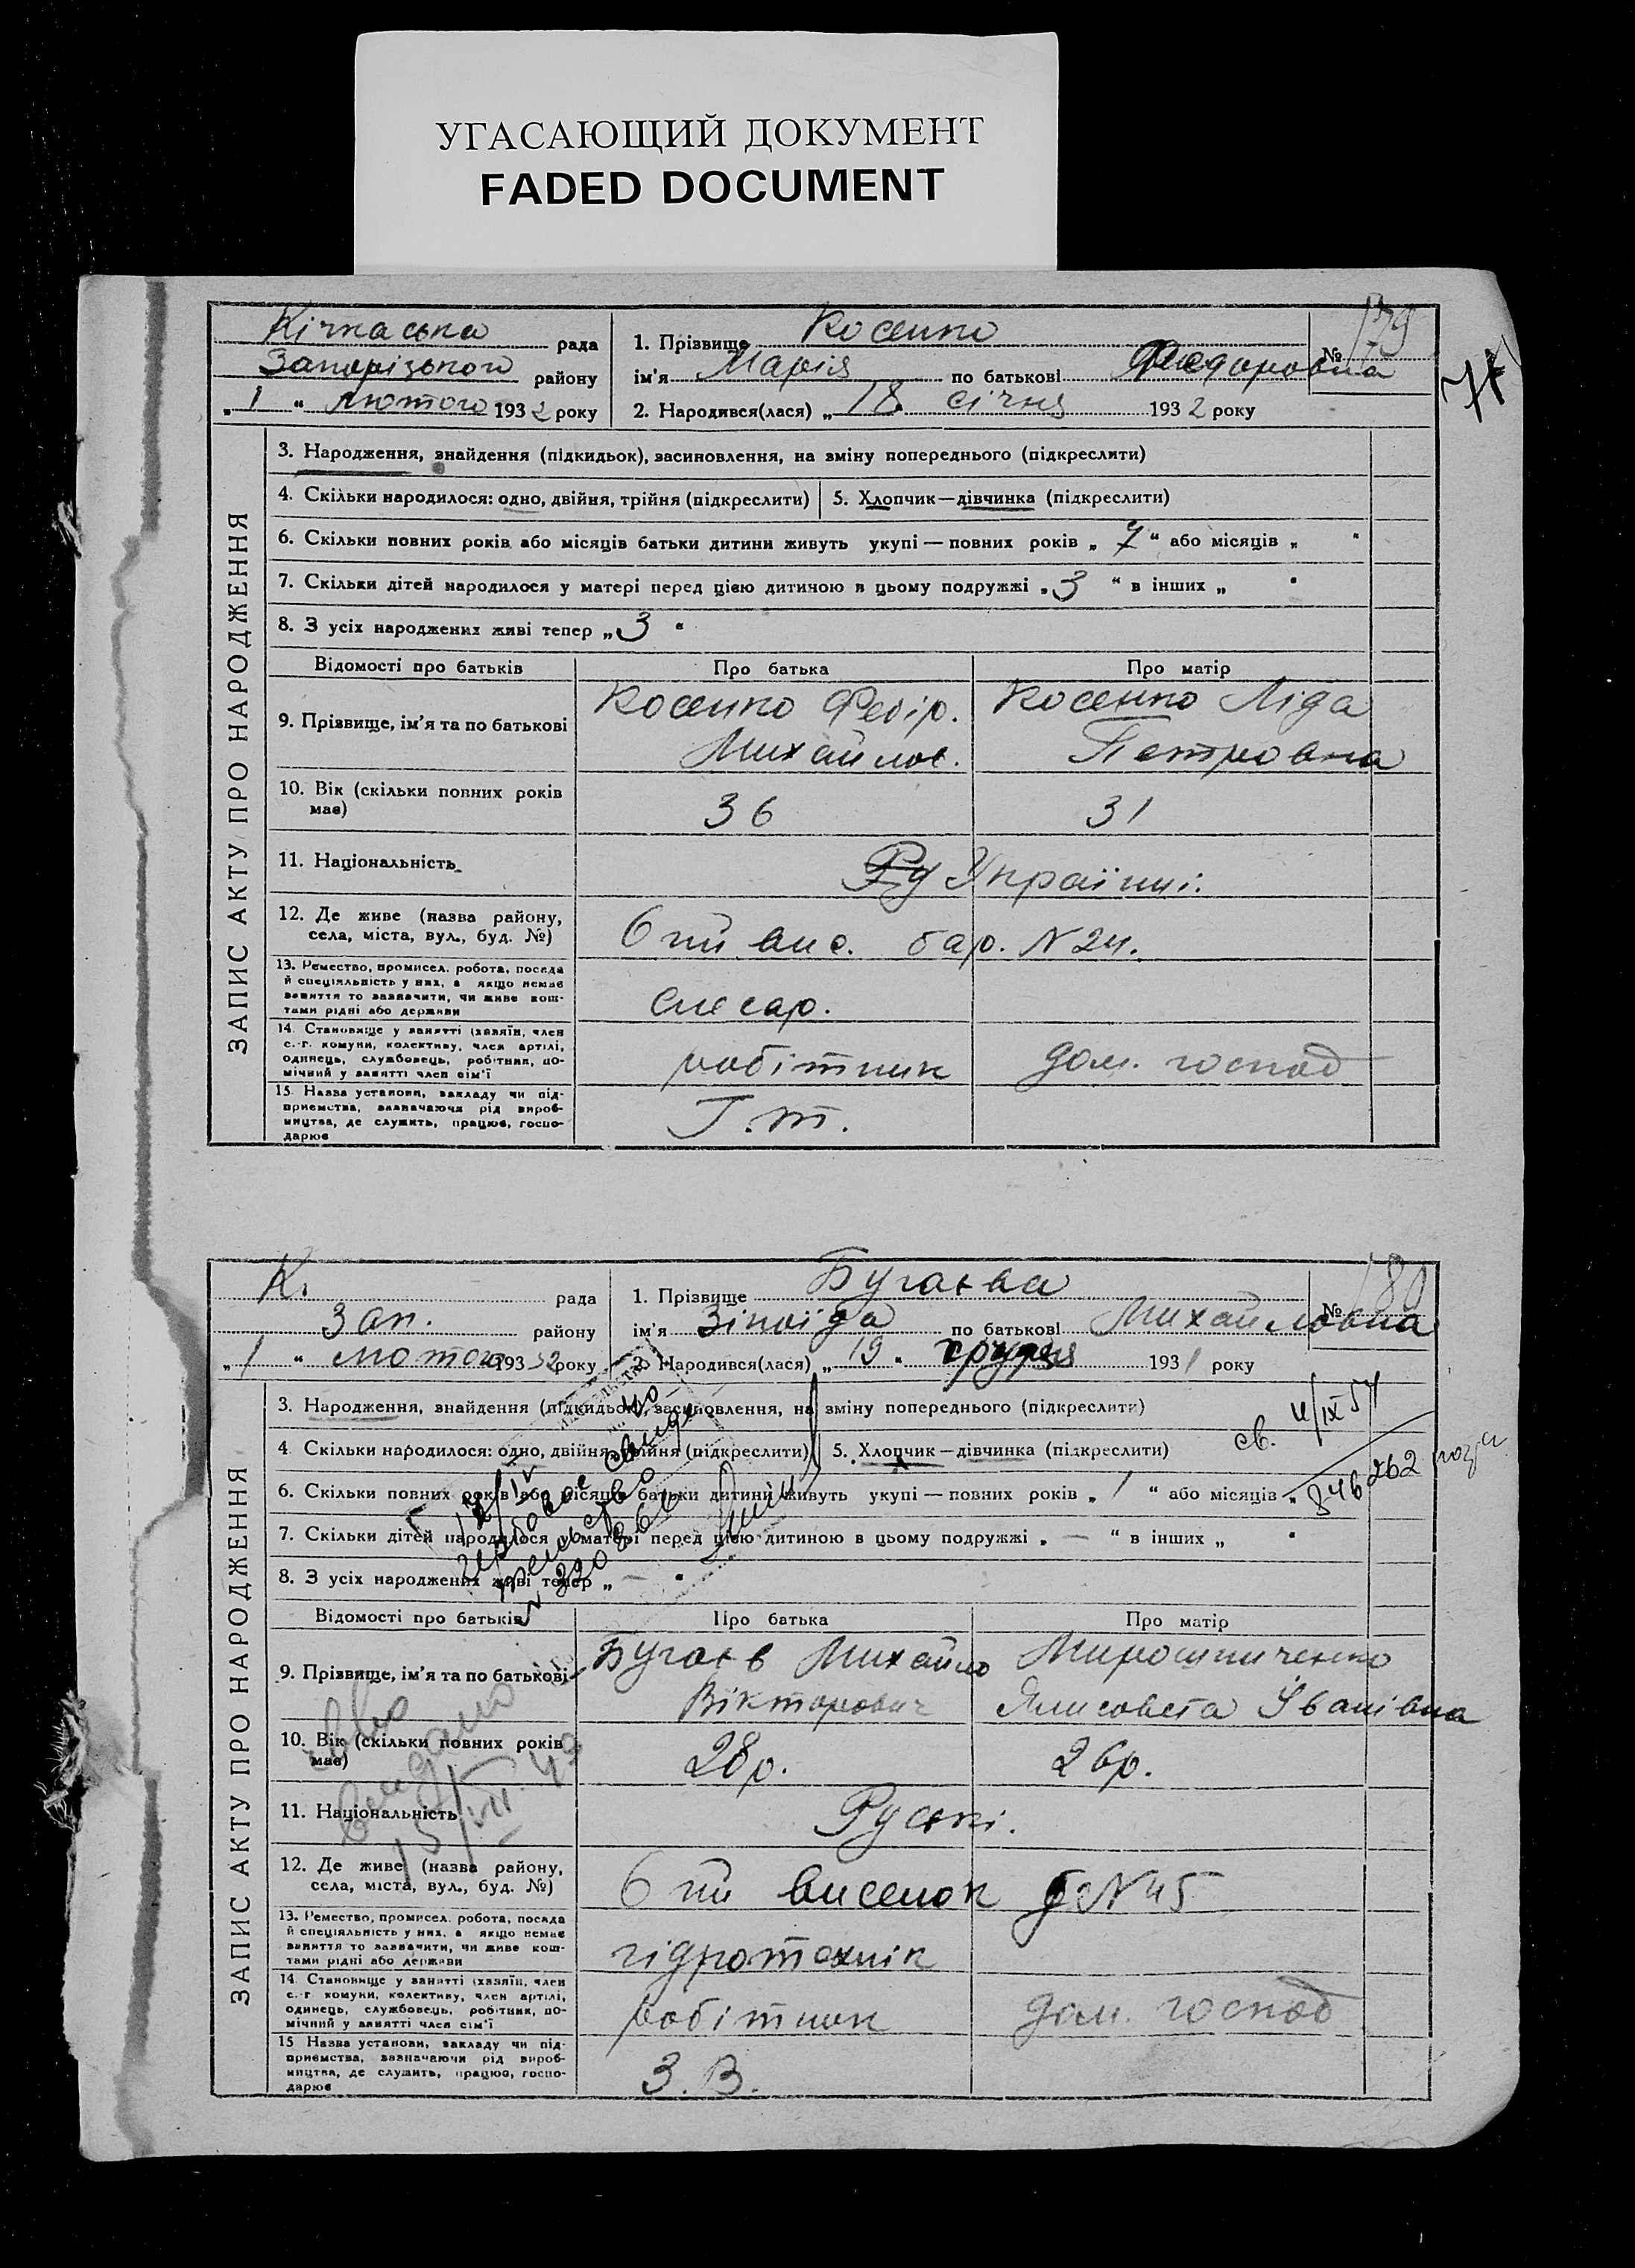 УГАСАЮЩИЙ ДОКУМЕНТ
FADED DOCUMENT
77
ЗАПИС АКТУ ПРО НАРОДЖЕННЯ
Кічкаська рада
Запорізького району
„1“ лютого 1932 року
1. Прізвище Косенко
№ 179
ім'я Марія по батькові Федоровна
2. Народився(лася) „18 січня 1932 року
3. Народження, знайдення (підкидьок), засиновлення, на зміну попереднього (підкреслити)
4. Скільки народилося: одно, двійня, трійня (підкреслити) 5. Хлопчик—дівчинка (підкреслити)
6. Скільки повних років або місяців батьки дитини живуть укупі — повних років „7“ або місяців „ “
7. Скільки дітей народилося у матері перед цією дитиною в цьому подружжі „3“ в інших „ “
8. З усіх народжених живі тепер „3“
Відомості про батьків Про батька Про матір
9. Прізвище, ім'я та по батькові
Косенко Федір. Михайлов.
Косенко Ліда Петровна
10. Вік (скільки повних років має)
36 31
11. Національність
Ру Україниі.
12. Де живе (назва району, села, міста, вул., буд. №)
6 ий вис. бар. N 24.
13. Ремество, промисел, робота, посада й спеціяльність у них, а якщо немає заняття то зазначити, чи живе коштами рідні або держави
слесар.
14. Становище у занятті (хазяїн, член с.-г. комуни, колективу, член артілі, одинець, службовець, робітник, помічний у занятті член сім'ї
робітник дом. господ
15. Назва установи, закладу чи підприємства, зазначаючи рід виробництва, де служить, працює, господарює
Г.т.
ЗАПИС АКТУ ПРО НАРОДЖЕННЯ
К. рада
Зап. району
„1“ лютого 1932 року
1. Прізвище Бугаєва
№ 180
ім'я Зіноїда по батькові Михайловна
2. Народився(лася) „19“ грудня 1931 року
3. Народження, знайдення (підкидьок), засиновлення, на зміну попереднього (підкреслити)
4. Скільки народилося: одно, двійня, трійня (підкреслити) 5. Хлопчик—дівчинка (підкреслити)
св. 4/IX 54
846262
6. Скільки повних років або місяців батьки дитини живуть укупі — повних років „1“ або місяців „
7. Скільки дітей народилося у матері перед цією дитиною в цьому подружжі „—“ в інших „ “
8. З усіх народжених живі тепер „—“
Відомості про батьків Про батька Про матір
9. Прізвище, ім'я та по батькові
Бугаєв Михайло Вікторович
Мирошниченко Єлисовета Іванівна
10. Вік (скільки повних років має)
28р. 26р.
видано
15/VII. 49
11. Національність
Руські.
12. Де живе (назва району, села, міста, вул., буд. №)
6 ий виселок б N 45
13. Ремество, промисел, робота, посада й спеціяльність у них, а якщо немає заняття то зазначити, чи живе коштами рідні або держави
гідротехнік
14. Становище у занятті (хазяїн, член с.-г. комуни, колективу, член артілі, одинець, службовець, робітник, помічний у занятті член сім'ї
робітник дом. господ
15 Назва установи, закладу чи підприємства, зазначаючи рід виробництва, де служить, працює, господарює
З.В.